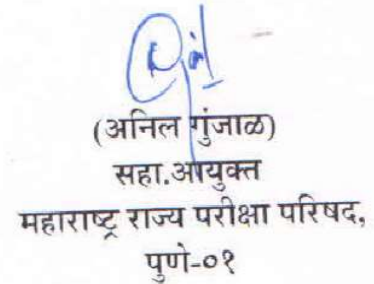 (अनिल गुंजाळ)
सहा.आयुक्त
महाराष्ट्र राज्य परीक्षा परिषद,
पुणे-०१